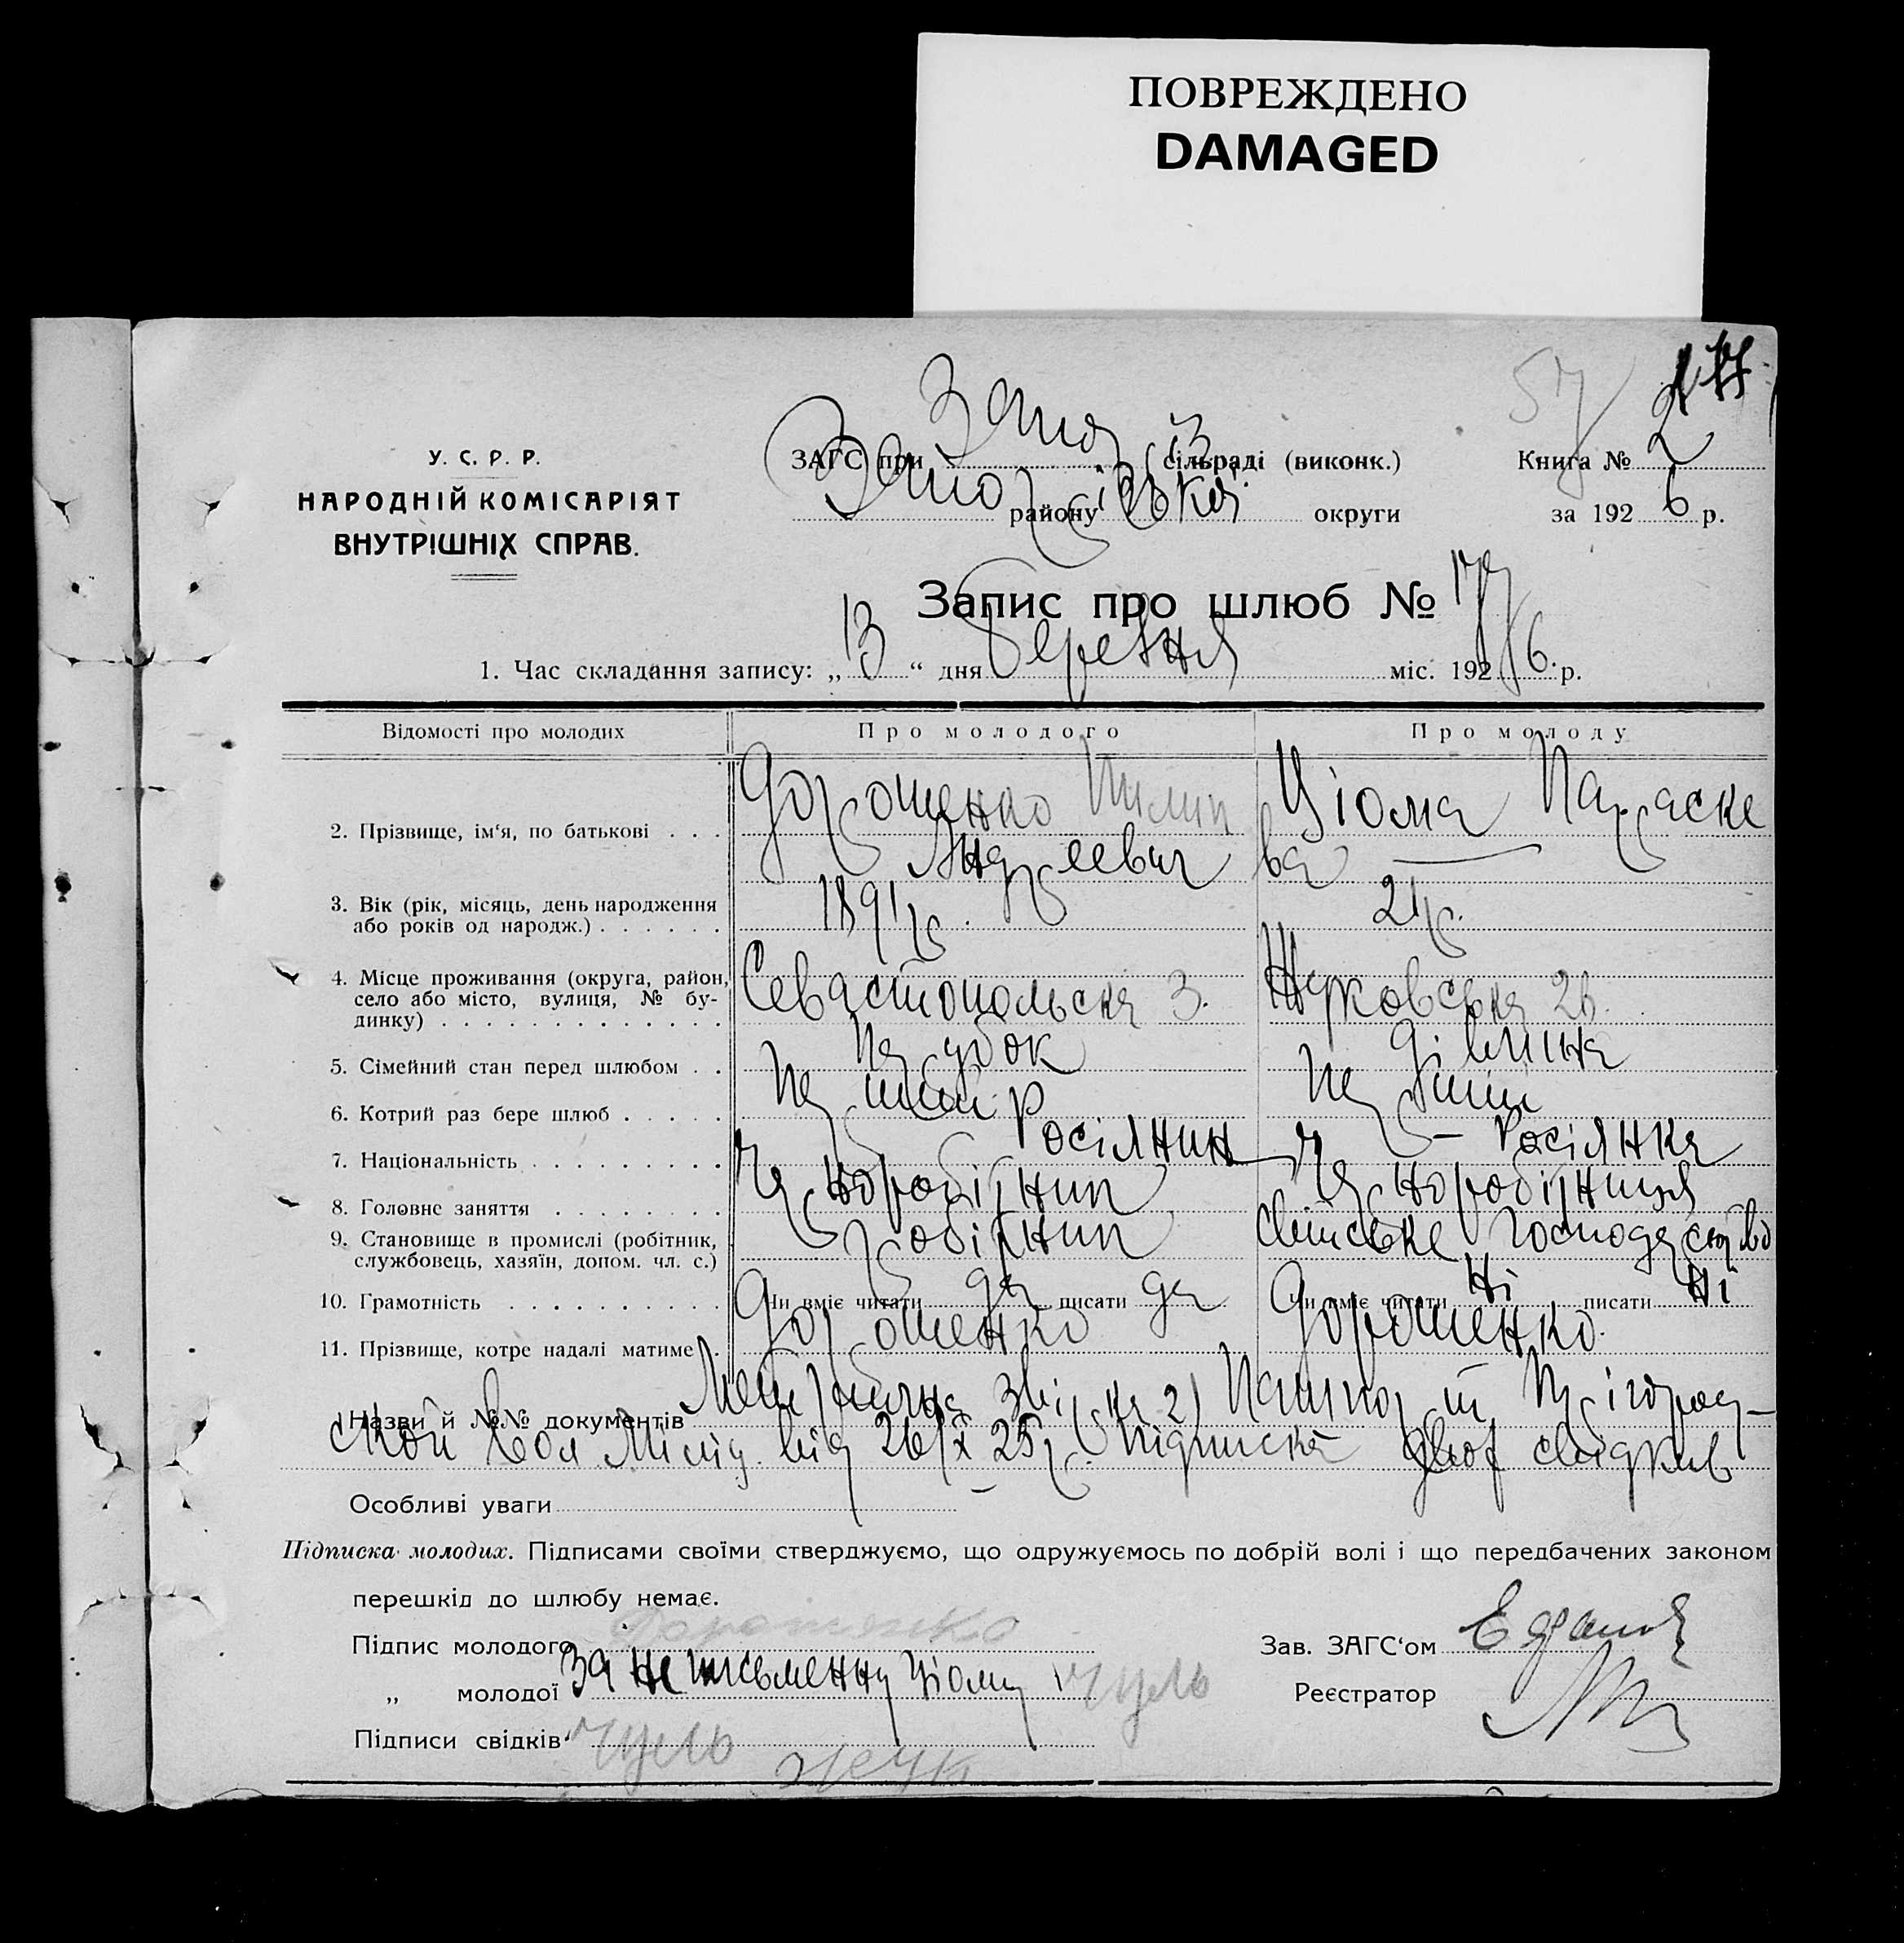 ПОВРЕЖДЕНО
DAMAGED
57
У. С. Р. Р.
НАРОДНІЙ КОМІСАРІЯТ
ВНУТРІШНІХ СПРАВ.
ЗАГС при Запоріз сільраді (виконк.)
Книга № 2
Запорізької району округи
за 1926 р.
Запис про шлюб № 177
1. Час складання запису: „13“ дня березня міс. 1926 р.
Відомості про молодих
Про молодого
Про молоду
2. Прізвище, ім‘я, по батькові . . .
Дорошенко Пилип
Андреевич
Ціома Параске
ва
3. Вік (рік, місяць, день народження
або років од народж.) . . . . . .
1891 р.
21 р.
4. Місце проживання (округа, район,
село або місто, вулиця, № бу-
динку) . . . . . . . . . . . . .
Севастопольска 3.
Жуковська 26.
5. Сімейний стан перед шлюбом . .
Парубок
Дівчина
6. Котрий раз бере шлюб . . . . .
Перший
Перший
7. Національність . . . . . . . . .
Росіянин
Росіянка
8. Головне заняття . . . . . . . .
Чорноробітник
Чорноробітниця
9. Становище в промислі (робітник,
службовець, хазяїн, допом. чл. с.)
робітник
сільське господарство
10. Грамотність . . . . . . . . . .
Чи вміє читати да писати да
Чи вміє читати Ні писати Ні
11. Прізвище, котре надалі матиме .
Дорошенко
Дорошенко.
Назви й №№ документів Метрична 2) Пашпорт
ской вол Міліц. від 26/X 25 р. Підписка двох свідків
Особливі уваги
Підписка молодих. Підписами своїми стверджуємо, що одружуємось по добрій волі і що передбачених законом
перешкід до шлюбу немає.
Підпис молодого Дорошенко
Зав. ЗАГС‘ом
„ молодої За неписьменну Ціому
Реєстратор
Підписи свідків